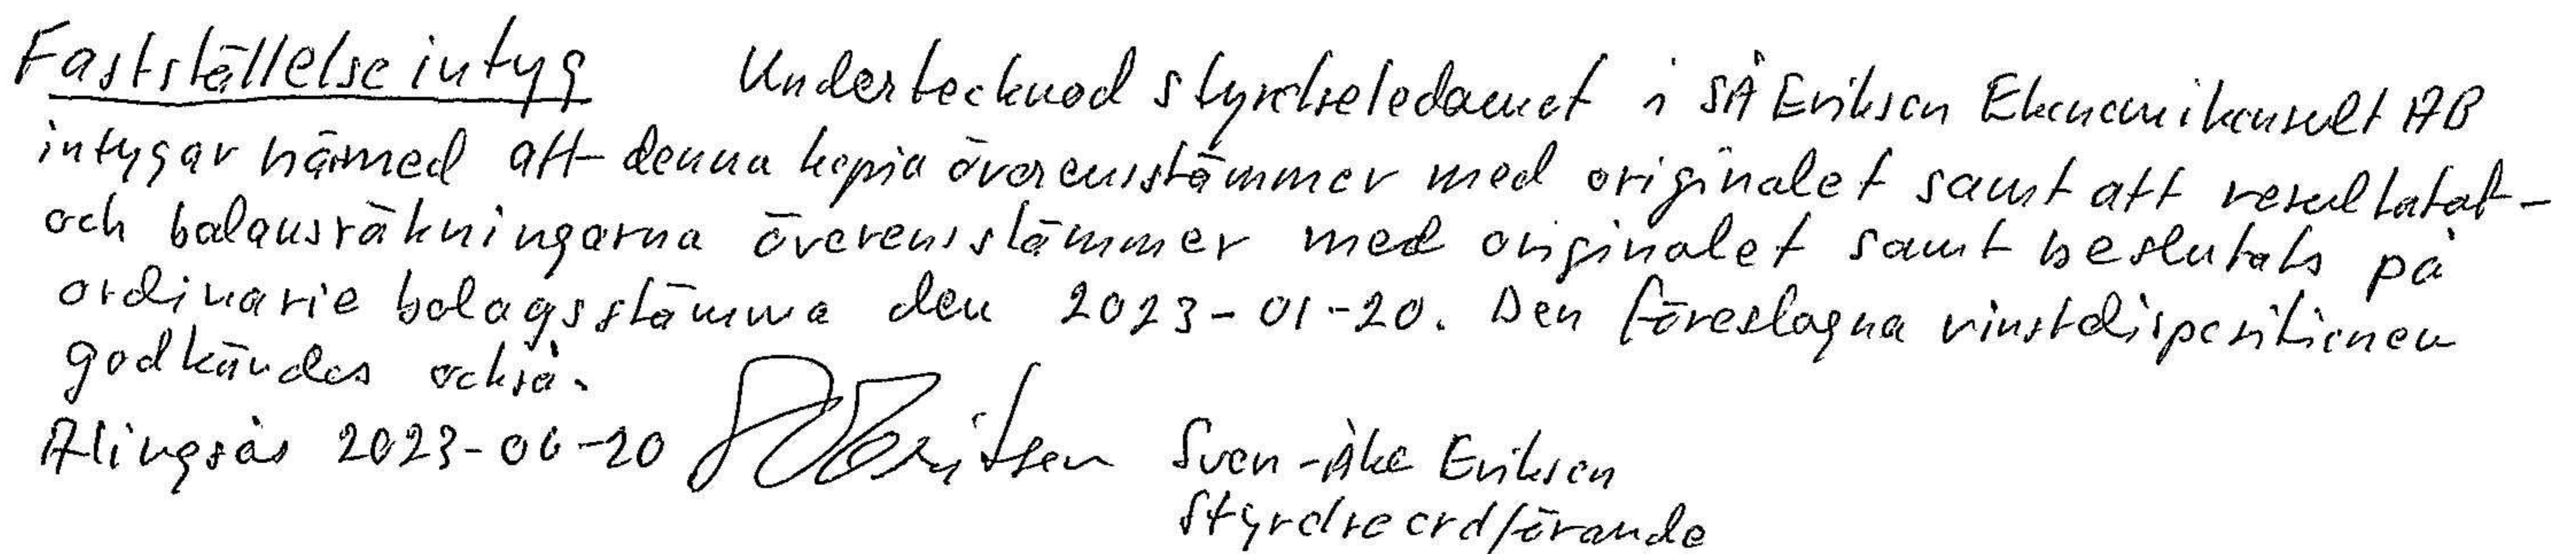 Fastställelseintyg Undertecknad styrelseledamot i SÅ Erikson Ekonomikonsult AB
intygar härmed att denna kopia överensstämmer med originalet samt att resultatat-
och balansräkningarna överensstämmer med originalet samt beslutats på
ordinarie bolagsstämma den 2023-01-20. Den föreslagna vinstdispositionen
godkändes också.
Alingsås 2023-06-20 Sven-Åke Erikson
Styrelseordförande